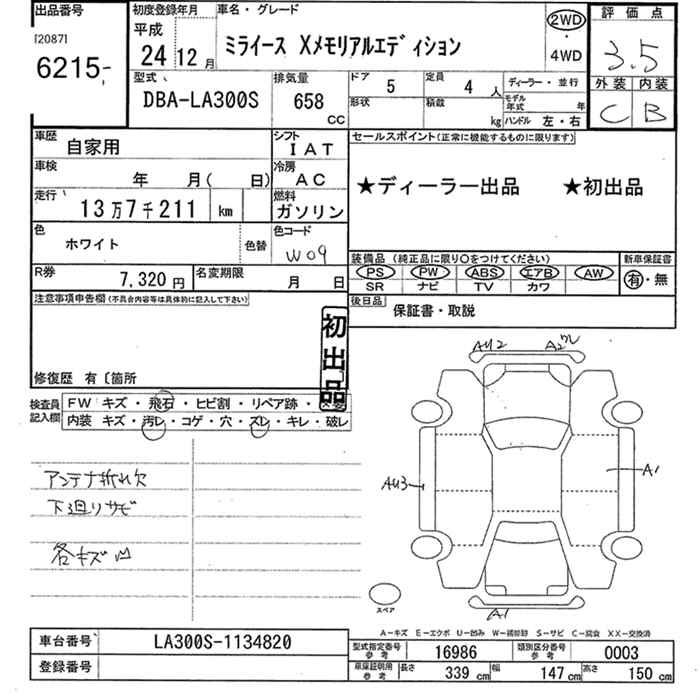 出品番号 初度登録年月 車名・グレード 評価点
[2087]
6215-
平成
24 12月 ミライース Xメモリアルエディション
2WD
・
4WD
3.5
外装 内装
C B
型式 排気量 ドア 5 定員 4人 ディーラー・並行
DBA-LA300S 658 cc
形状 積載 kg モデル年式 年
ハンドル 左・右
車歴 自家用
シフト IAT
セールスポイント(正常に機能するものに限ります)
車検 年 月( 日)
冷房 AC
★ディーラー出品 ★初出品
走行 13万7千211 km
燃料 ガソリン
色 ホワイト 色替
色コード W09
装備品 (純正品に限り○をつけてください) 新車保証書
PS PW ABS エアB AW 有・無
SR ナビ TV カワ
R券 7,320円 名変期限 月 日
注意事項申告欄(不具合内容等は具体的に記入して下さい)
後日品 保証書・取説
初出品
修復歴 有〔箇所
検査員記入欄
FW キズ・飛石・ヒビ割・リペア跡・
内装 キズ・汚レ・コゲ・穴・スレ・キレ・破レ
アンテナ折れ欠
下廻りサビ
各キズ凹
AU2 A2
AU3
A1
A1
スペア
A-キズ E-エクボ U-凹み W-補修跡 S-サビ C-腐食 XX-交換済
車台番号 LA300S-1134820
登録番号
型式指定番号 参考 16986 類別区分番号 参考 0003
車庫証明用 参考 長さ 339 cm 幅 147 cm 高さ 150 cm